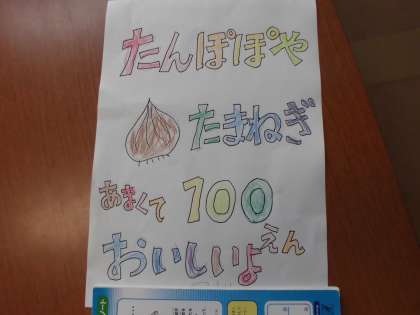 たんぽぽや
たまねぎ
あまくて 100
えん
おいしいよ